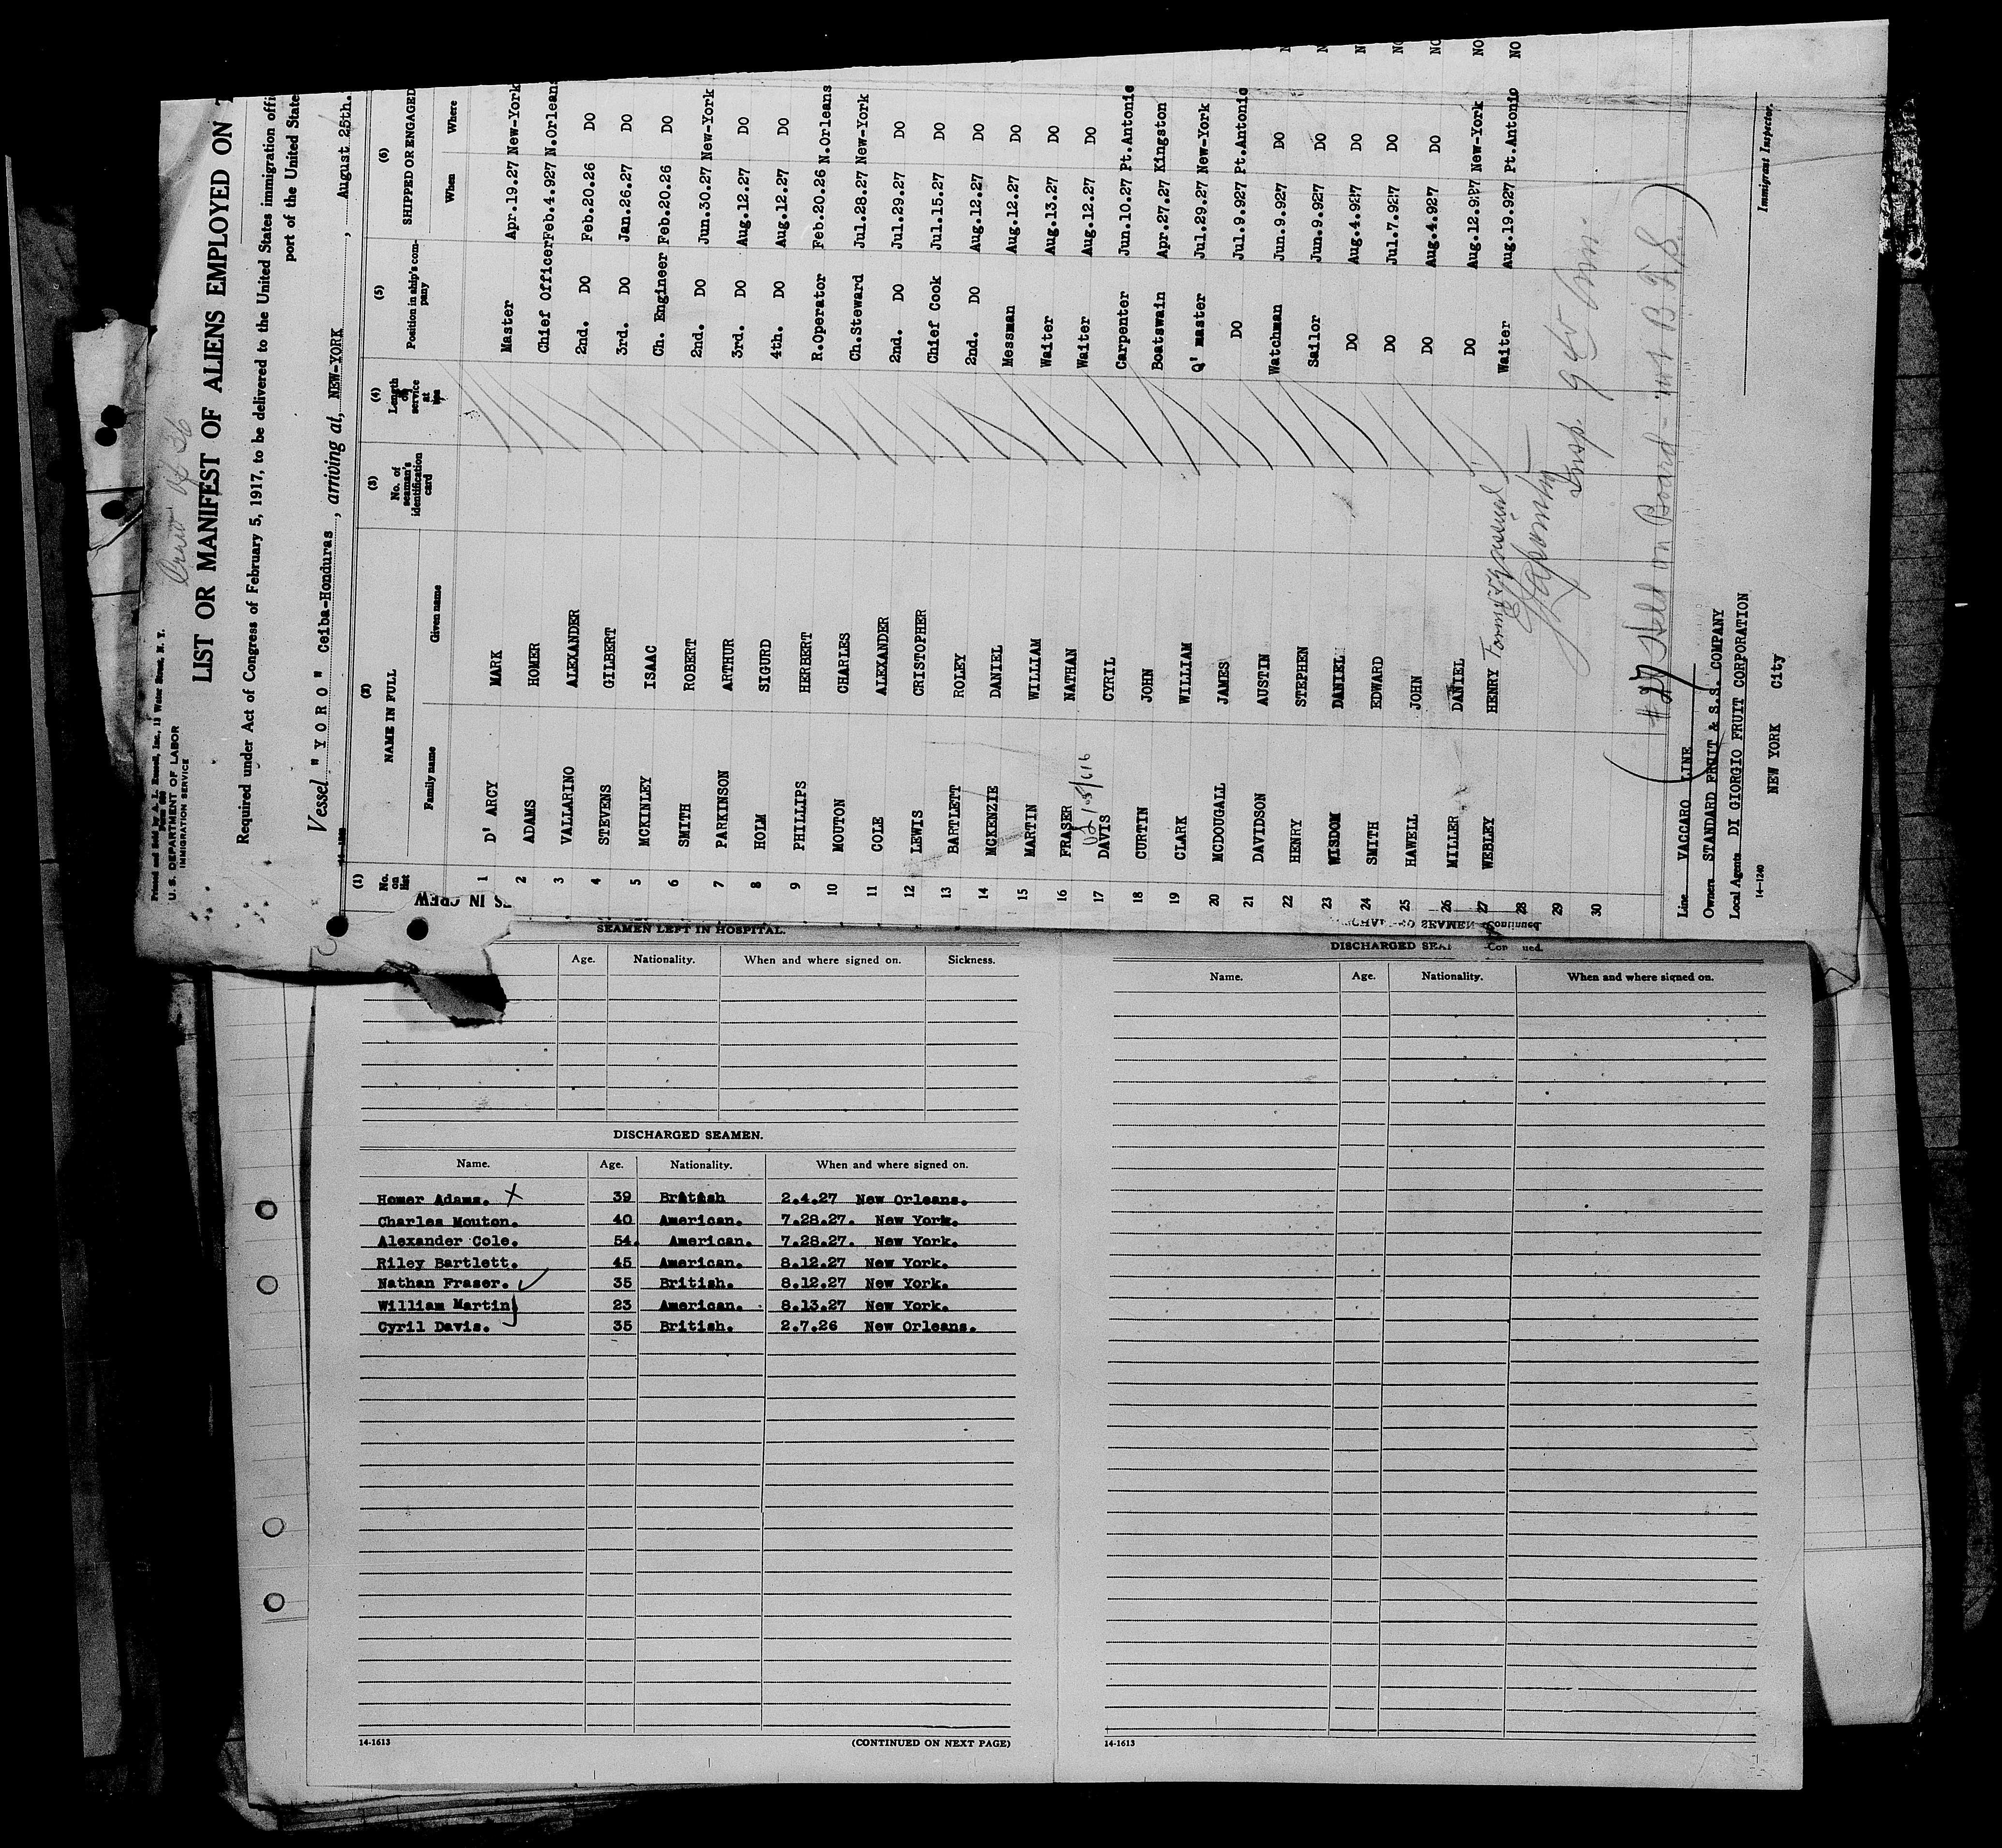 Printed and Sold by A. L. Russell, Inc., 13 Water Street, N. Y.
Form 680
U. S. DEPARTMENT OF LABOR
IMMIGRATION SERVICE
Crew of 26
LIST OR MANIFEST OF ALIENS EMPLOYED ON
Required under Act of Congress of February 5, 1917, to be delivered to the United States immigration offi
port of the United State
Vessel "YORO" Ceiba-Honduras, arriving at, NEW-YORK, August 25th.
(1) (2) (3) (4) (5) (6)
No. on list NAME IN FULL No. of seaman's identification card Length of service at sea Position in ship's company SHIPPED OR ENGAGED
Family name Given name When Where
1 D' ARCY MARK Master Apr.19.27 New-York
2 ADAMS HOMER Chief Officer Feb.4.927 N.Orleans
3 VALLARINO ALEXANDER 2nd. DO Feb.20.26 DO
4 STEVENS GILBERT 3rd. DO Jan.26.27 DO
5 MCKINLEY ISAAC Ch. Engineer Feb.20.26 DO
6 SMITH ROBERT 2nd. DO Jun.30.27 New-York
7 PARKINSON ARTHUR 3rd. DO Aug.12.27 DO
8 HOLM SIGURD 4th. DO Aug.12.27 DO
9 PHILLIPS HERBERT R.Operator Feb.20.26 N.Orleans
10 MOUTON CHARLES Ch.Steward Jul.28.27 New-York
11 COLE ALEXANDER 2nd. DO Jul.29.27 DO
12 LEWIS CRISTOPHER Chief Cook Jul.15.27 DO
13 BARTLETT ROLEY 2nd. DO Aug.12.27 DO
14 MCKENZIE DANIEL Messman Aug.12.27 DO
15 MARTIN WILLIAM Waiter Aug.13.27 DO
16 FRASER NATHAN Waiter Aug.12.27 DO
17 DAVIS CYRIL Carpenter Jun.10.27 Pt.Antonio
18 CURTIN JOHN Boatswain Apr.27.27 Kingston
19 CLARK WILLIAM Q' master Jul.29.27 New-York
20 MCDOUGALL JAMES DO Jul.9.927 Pt.Antonio
21 DAVIDSON AUSTIN Watchman Jun.9.927 DO
22 HENRY STEPHEN Sailor Jun.9.927 DO
23 WISDOM DANIEL DO Aug.4.927 DO
24 SMITH EDWARD DO Jul.7.927 DO
25 HAWELL JOHN DO Aug.4.927 DO
26 MILLER DANIEL DO Aug.12.927 New-York
27 WEBLEY HENRY Waiter Aug.19.927 Pt.Antonio NO
28
29
30
Insp.
(#27 Held on Board - B.I.S.)
Line VACCARO LINE
Owners STANDARD FRUIT & S.S. COMPANY
Local Agents DI GIORGIO FRUIT CORPORATION
NEW YORK City
Immigrant Inspector.
14-1240
S IN CREW
SEAMEN LEFT IN HOSPITAL.
Age. Nationality. When and where signed on. Sickness.
DISCHARGED SEAMEN.
Name. Age. Nationality. When and where signed on.
Homer Adams. X 39 British 2.4.27 New Orleans.
Charles Mouton. 40 American. 7.28.27. New York.
Alexander Cole. 54. American. 7.28.27. New York.
Riley Bartlett. 45 American. 8.12.27 New York.
Nathan Fraser. 35 British. 8.12.27 New York.
William Martin 23 American. 8.13.27 New York.
Cyril Davis. 35 British. 2.7.26 New Orleans.
14-1613 (CONTINUED ON NEXT PAGE)
DISCHARGED SEA Con ued.
Name. Age. Nationality. When and where signed on.
14-1613